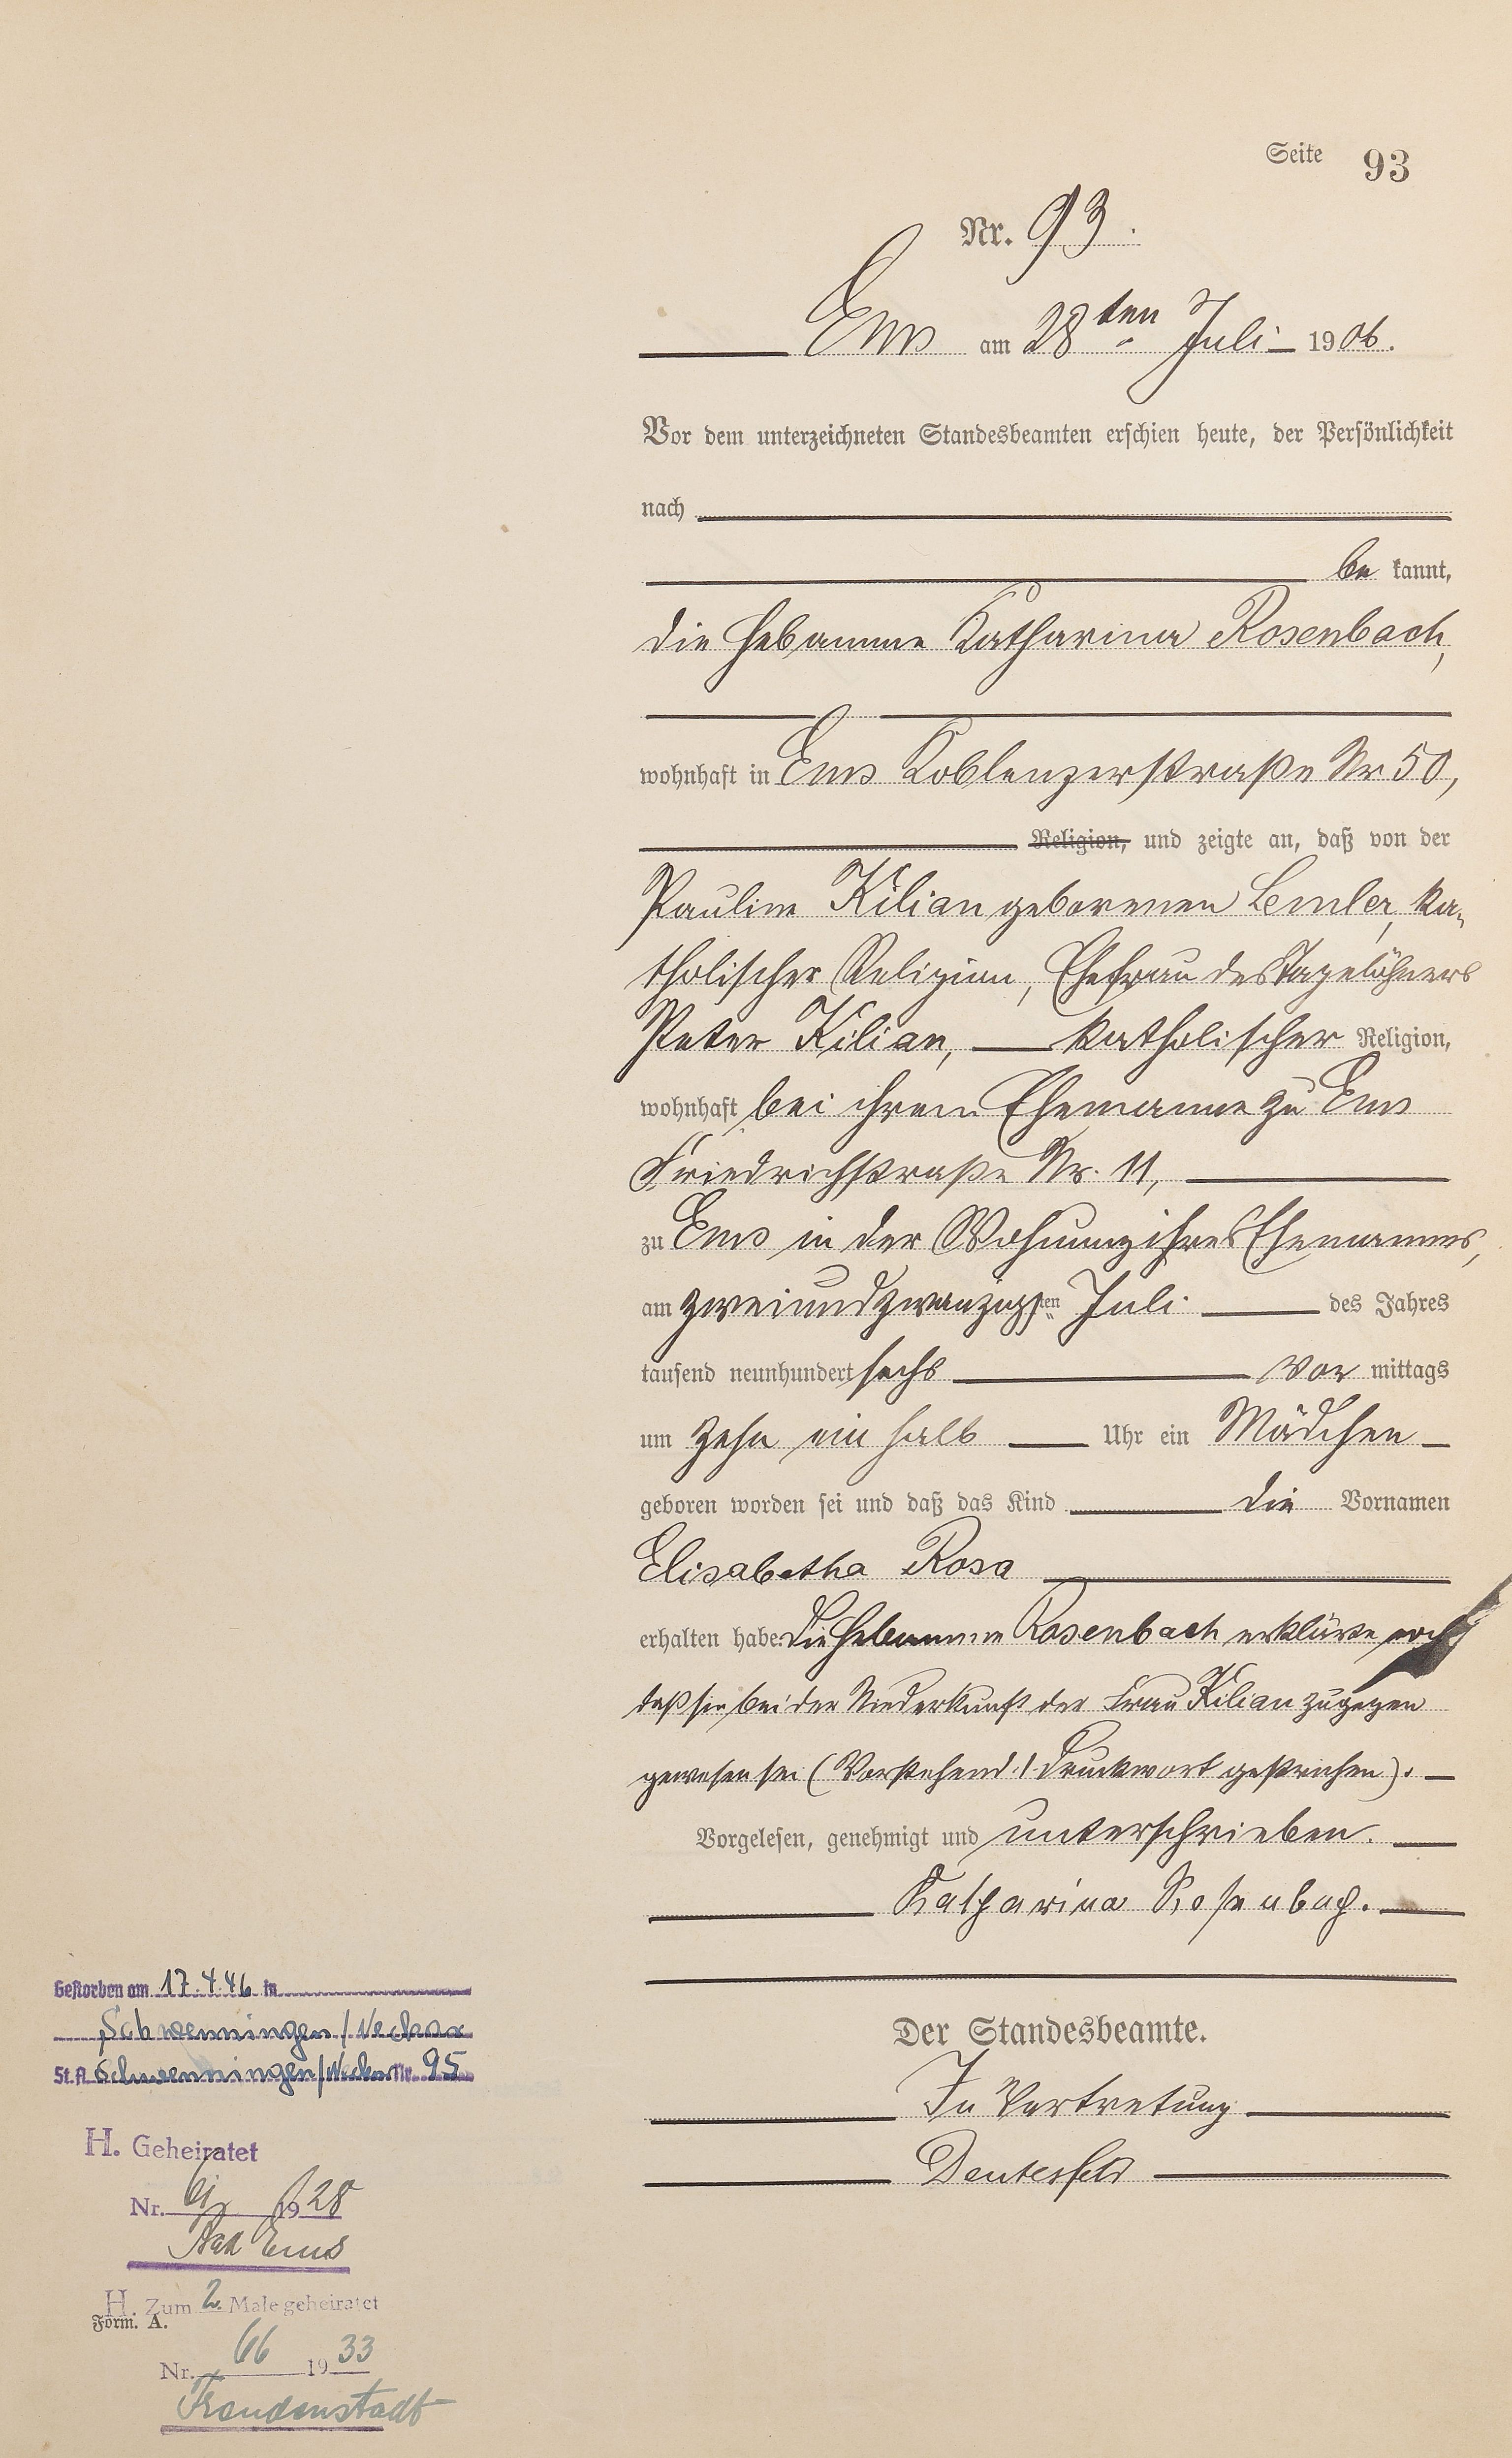 Seite 93
Nr. 93.
Ems am 28ten Juli 1906.
Vor dem unterzeichneten Standesbeamten erschien heute, der Persönlichkeit
nach
be kannt,
die Hebamme Katharina Rosenbach,
wohnhaft in Ems Koblenzerstraße Nr 50,
Religion, und zeigte an, daß von der
Pauline Kilian geborenen Lemler, ka-
tholischer Religion, Ehefrau des Tagelöhners
Peter Kilian, katholischer Religion,
wohnhaft bei ihrem Ehemanne zu Ems
Friedrichstraße Nr. 11,
zu Ems in der Wohnung ihres Ehemannes,
am zweiundzwanzigsten Juli des Jahres
tausend neunhundert sechs vor mittags
um zehn ein halb Uhr ein Mädchen
geboren worden sei und daß das Kind die Vornamen
Elisabetha Rosa
erhalten habe. Die Hebamme Rosenbach erklärte noch
daß sie bei der Niederkunft der Frau Kilian zugegen
gewesen sei (Vorstehend 1 Druckwort gestrichen).
Vorgelesen, genehmigt und unterschrieben.
Katharina Rosenbach.
Der Standesbeamte.
In Vertretung
Deutesfeld
Gestorben am 17.4.46 in
Schwenningen/Neckar
St.A. Schwenningen/Neckar Nr. 95
H. Geheiratet
Nr. 1928
Bad Ems
H. Zum 2. Male geheiratet
Form. A.
Nr. 66 1933
Freudenstadt